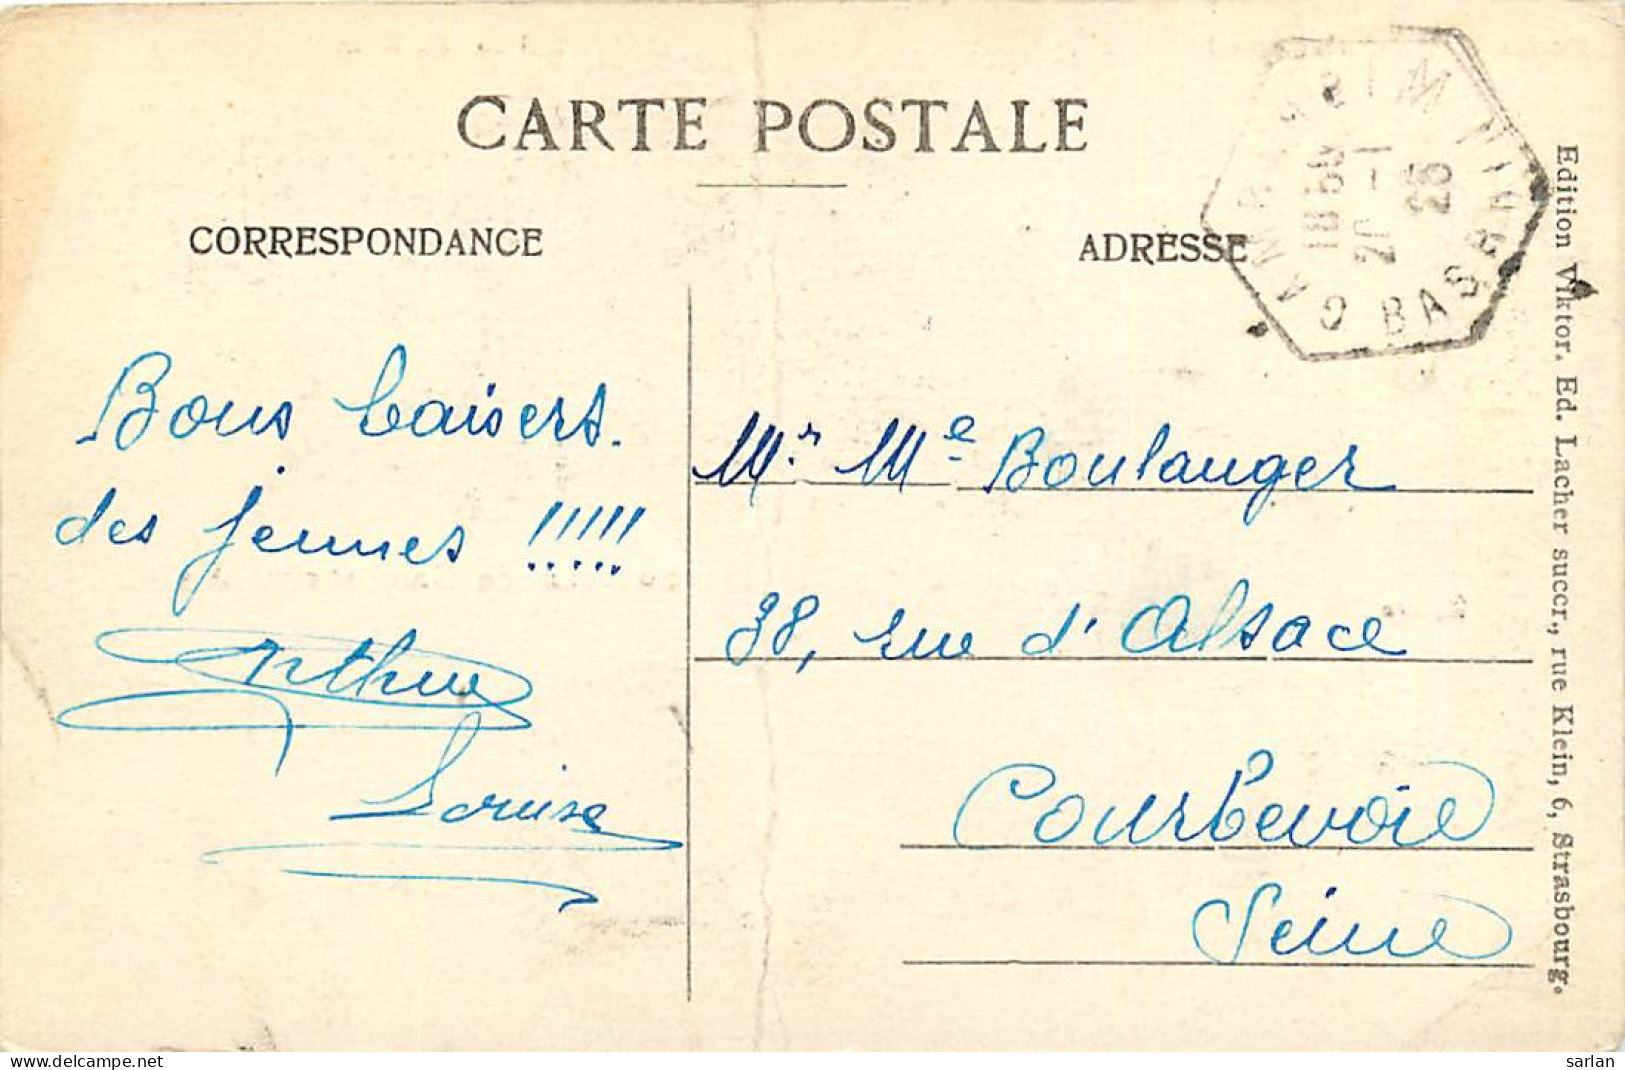 CARTE POSTALE
CORRESPONDANCE
ADRESSE
Bons baisers.
des jeunes !!!!!
Arthur
Louise
Mr. Me Boulanger
38, rue d'Alsace
Courbevoie
Seine
18 50
20 -1
25
BAS RHIN
Edition Viktor. Ed. Lacher succr., rue Klein, 6, Strasbourg.
delcampe.net
sarlan